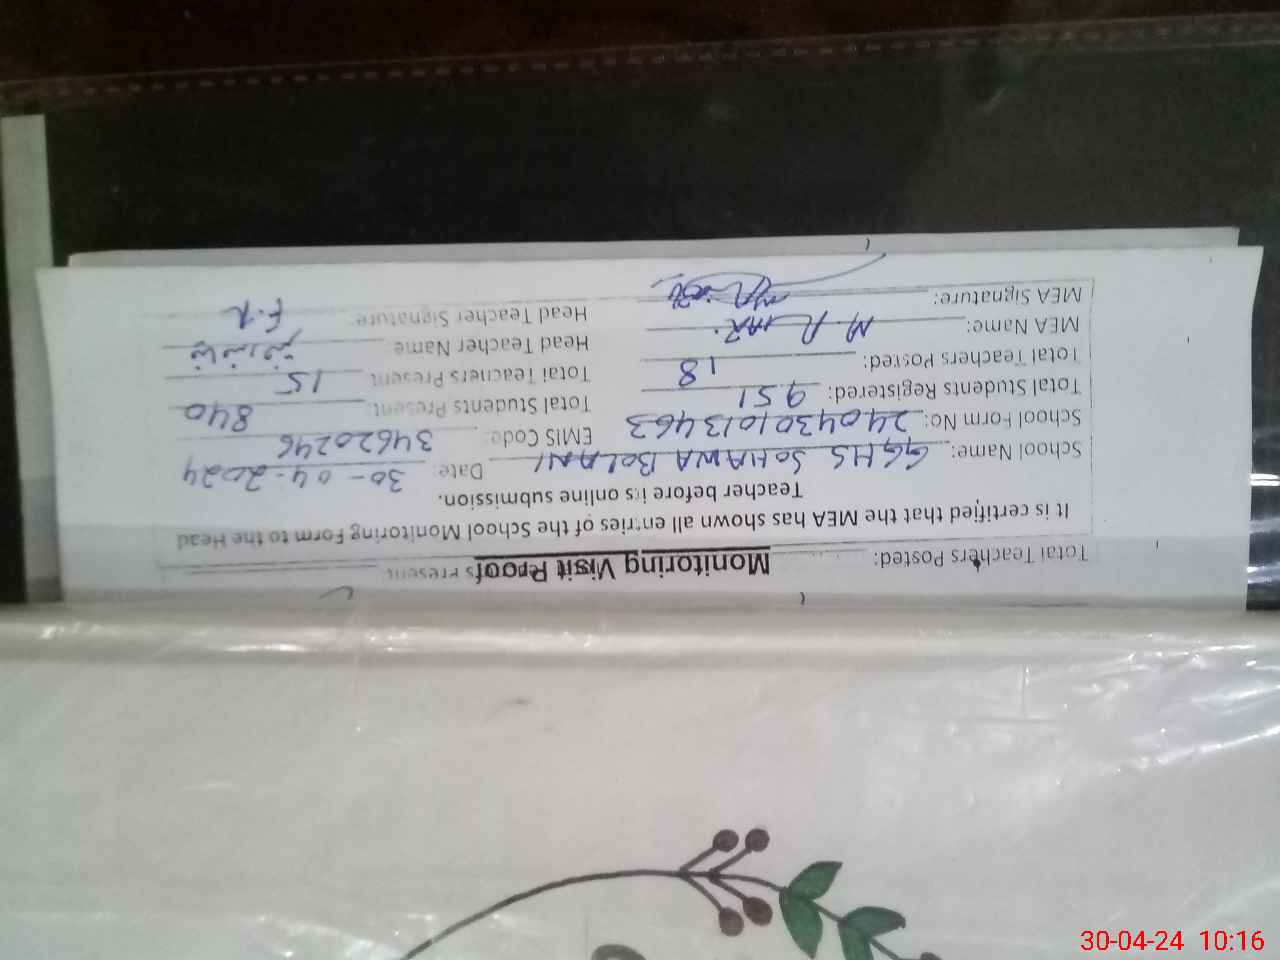 Total Teachers Posted:
Monitoring Visit Proof
It is certified that the MEA has shown all entries of the School Monitoring Form to the Head
Teacher before its online submission.
School Name: GGHS SOHAWA BOLANI Date: 30-04-2024
School Form No: 2404301013463 EMIS Code: 34620246
Total Students Registered: 951 Total Students Present: 840
Total Teachers Posted: 18 Total Teachers Present 15
MEA Name: M. Head Teacher Name
MEA Signature: Head Teacher Signature: F.R
30-04-24 10:16